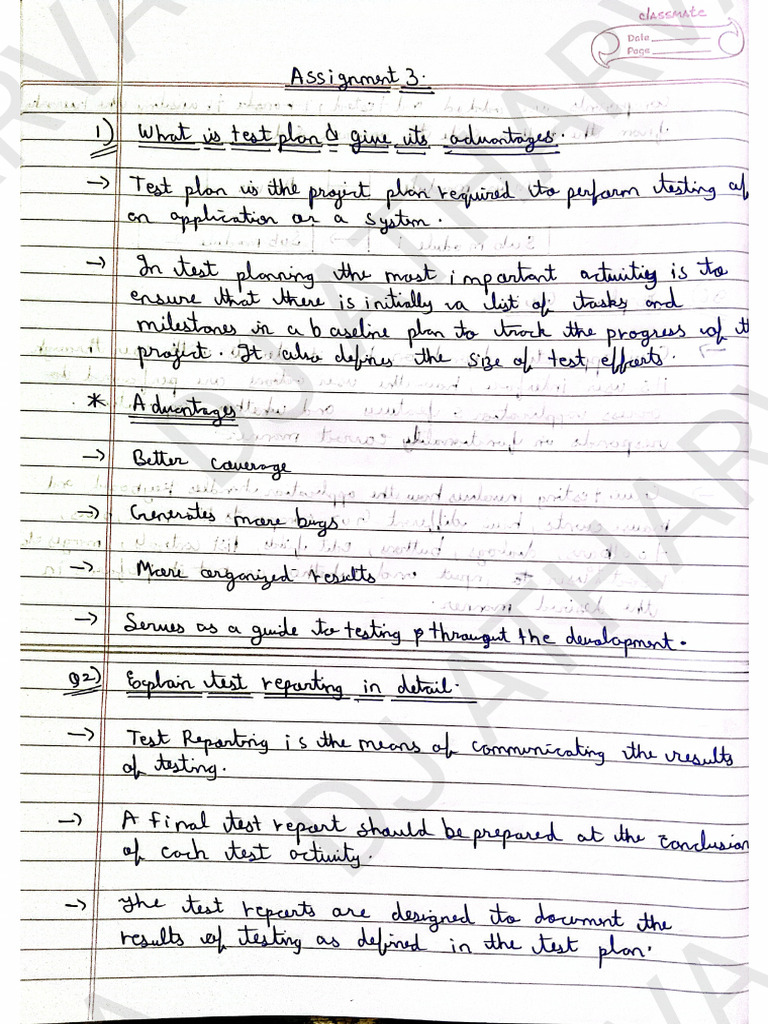 classmate
Date
Page
Assignment 3.
1) What is test plan & give its advantages.
→ Test plan is the project plan required to perform testing of
an application or a system.
→ In test planning the most important activities is to
ensure that there is initially a list of tasks and
milestones in a baseline plan to track the progress of th
project. It also defines the size of test efforts.
* Advantages
→ Better coverage
→ Generates more bugs
→ More organized results
→ Serves as a guide to testing throughout the development.
Q2) Explain test reporting in detail.
→ Test Reporting is the means of communicating the results
of testing.
→ A final test report should be prepared at the conclusion
of each test activity.
→ The test reports are designed to document the
results of testing as defined in the test plan.
DJ ATHARVA
DJ ATHARVA